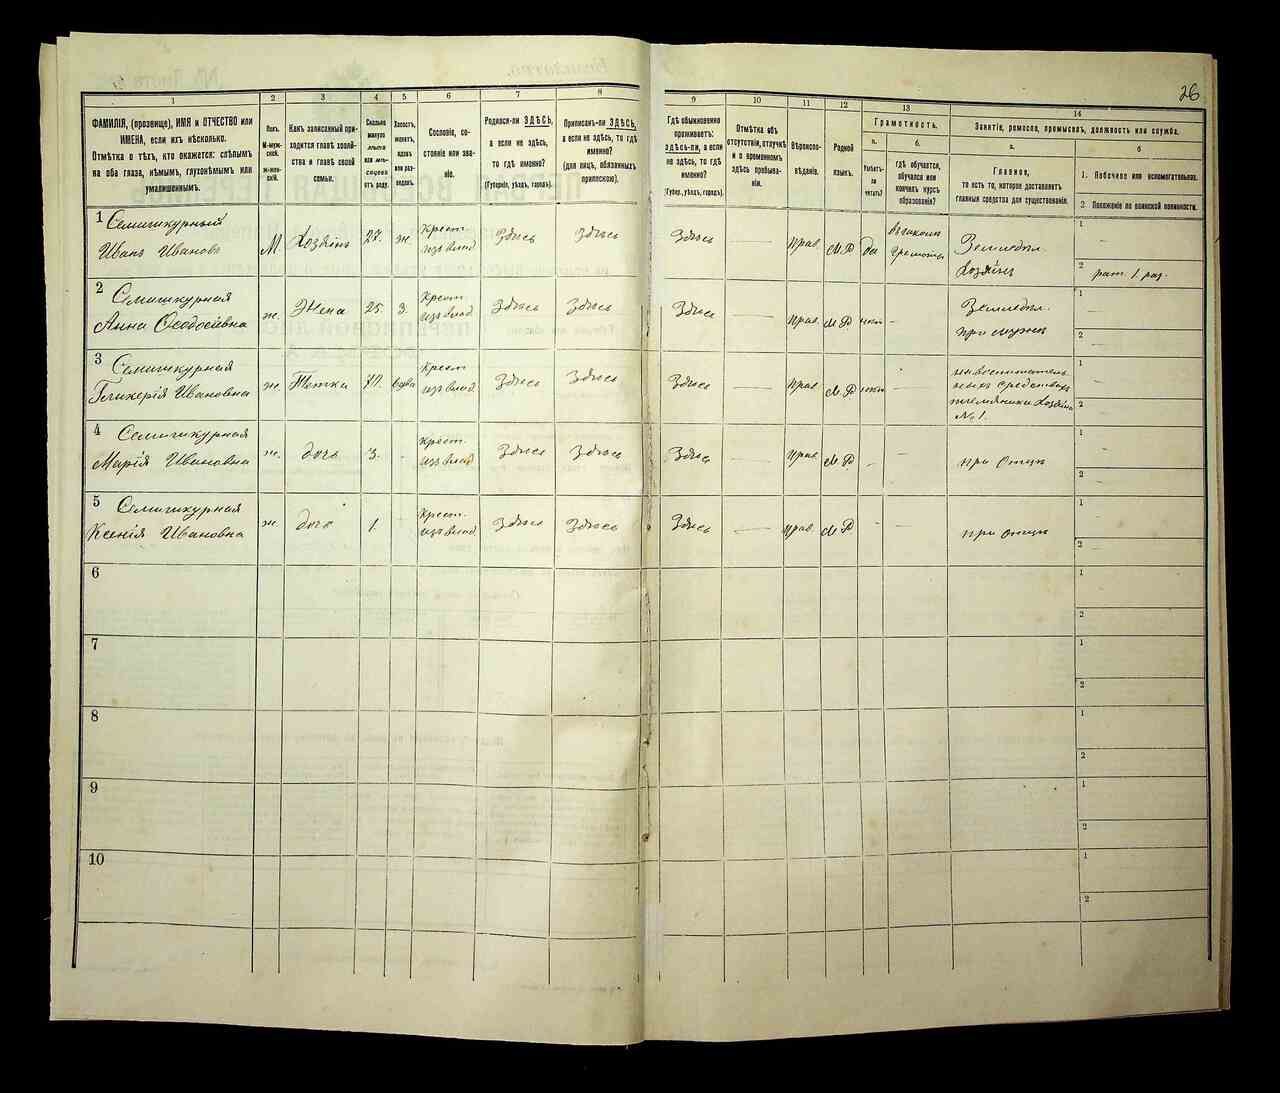 26
1
2
3
4
5
6
7
8
9
10
11
12
13
14
ФАМИЛІЯ, (прозвище), ИМЯ и ОТЧЕСТВО или
ИМЕНА, если ихъ нѣсколько.
Отмѣтка о тѣхъ, кто окажется: слѣпымъ
на оба глаза, нѣмымъ, глухонѣмымъ или
умалишеннымъ.
Полъ.
М-муж-
ской.
Ж-жен-
скій.
Какъ записанный при-
ходится главѣ хозяй-
ства и главѣ своей
семьи.
Сколько
минуло
лѣтъ
или мѣ-
сяцевъ
отъ роду.
Холостъ,
женатъ,
вдовъ
или раз-
веденъ.
Сословіе, со-
стояніе или зва-
ніе.
Родился-ли ЗДѢСЬ,
а если не здѣсь,
то гдѣ именно?
(Губернія, уѣздъ, городъ).
Приписанъ-ли ЗДѢСЬ,
а если не здѣсь, то гдѣ
именно?
(для лицъ, обязанныхъ
припискою).
Гдѣ обыкновенно
проживаетъ:
здѣсь-ли, а если
не здѣсь, то гдѣ
именно?
(Губер., уѣздъ, городъ).
Отмѣтка объ
отсутствіи, отлучкѣ
и о временномъ
здѣсь пребыва-
ніи.
Вѣроиспо-
вѣданіе.
Родной
языкъ.
Грамотность.
а.
Умѣетъ-
ли
читать?
б.
гдѣ обучается,
обучался или
кончилъ курсъ
образованія?
Занятіе, ремесло, промыселъ, должность или служба.
а.
Главное,
то есть то, которое доставляетъ
главныя средства для существованія.
б
1. Побочное или вспомогательное.
2. Положеніе по воинской повинности.
1 Семишкурный
Иванъ Ивановъ
М
Хозяинъ
27.
ж.
Крест.
изъ влад.
Здѣсь
Здѣсь
Здѣсь
прав.
М.Р.
да
грамотѣ
Земледѣл.
Хозяинъ
1
2
рат. 1. раз.
2 Семишкурная
Анна Ѳеодосіевна
ж.
Жена
25
З.
Крест.
изъ влад.
Здѣсь
Здѣсь
Здѣсь
Прав.
М.Р.
нѣтъ
-
Земледѣл.
при мужѣ
1
2
3 Семишкурная
Гликерія Ивановна
ж.
Тетка
70.
вдова
Крест
изъ влад.
Здѣсь
Здѣсь
Здѣсь
Прав.
М.Р.
нѣтъ
-
средствахъ
племянника Хозяина
№ 1.
1
2
4 Семишкурная
Марія Ивановна
ж.
дочь
3.
-
Крест.
изъ влад
Здѣсь
Здѣсь
Здѣсь
Прав.
М.Р.
-
-
при Отцѣ
1
2
5 Семишкурная
Ксенія Ивановна
ж.
дочь
1.
-
Крест.
изъ влад
Здѣсь
Здѣсь
Здѣсь
Прав.
М.Р.
-
при Отцѣ
1
2
6
1
2
7
1
2
8
1
2
9
1
2
10
1
2